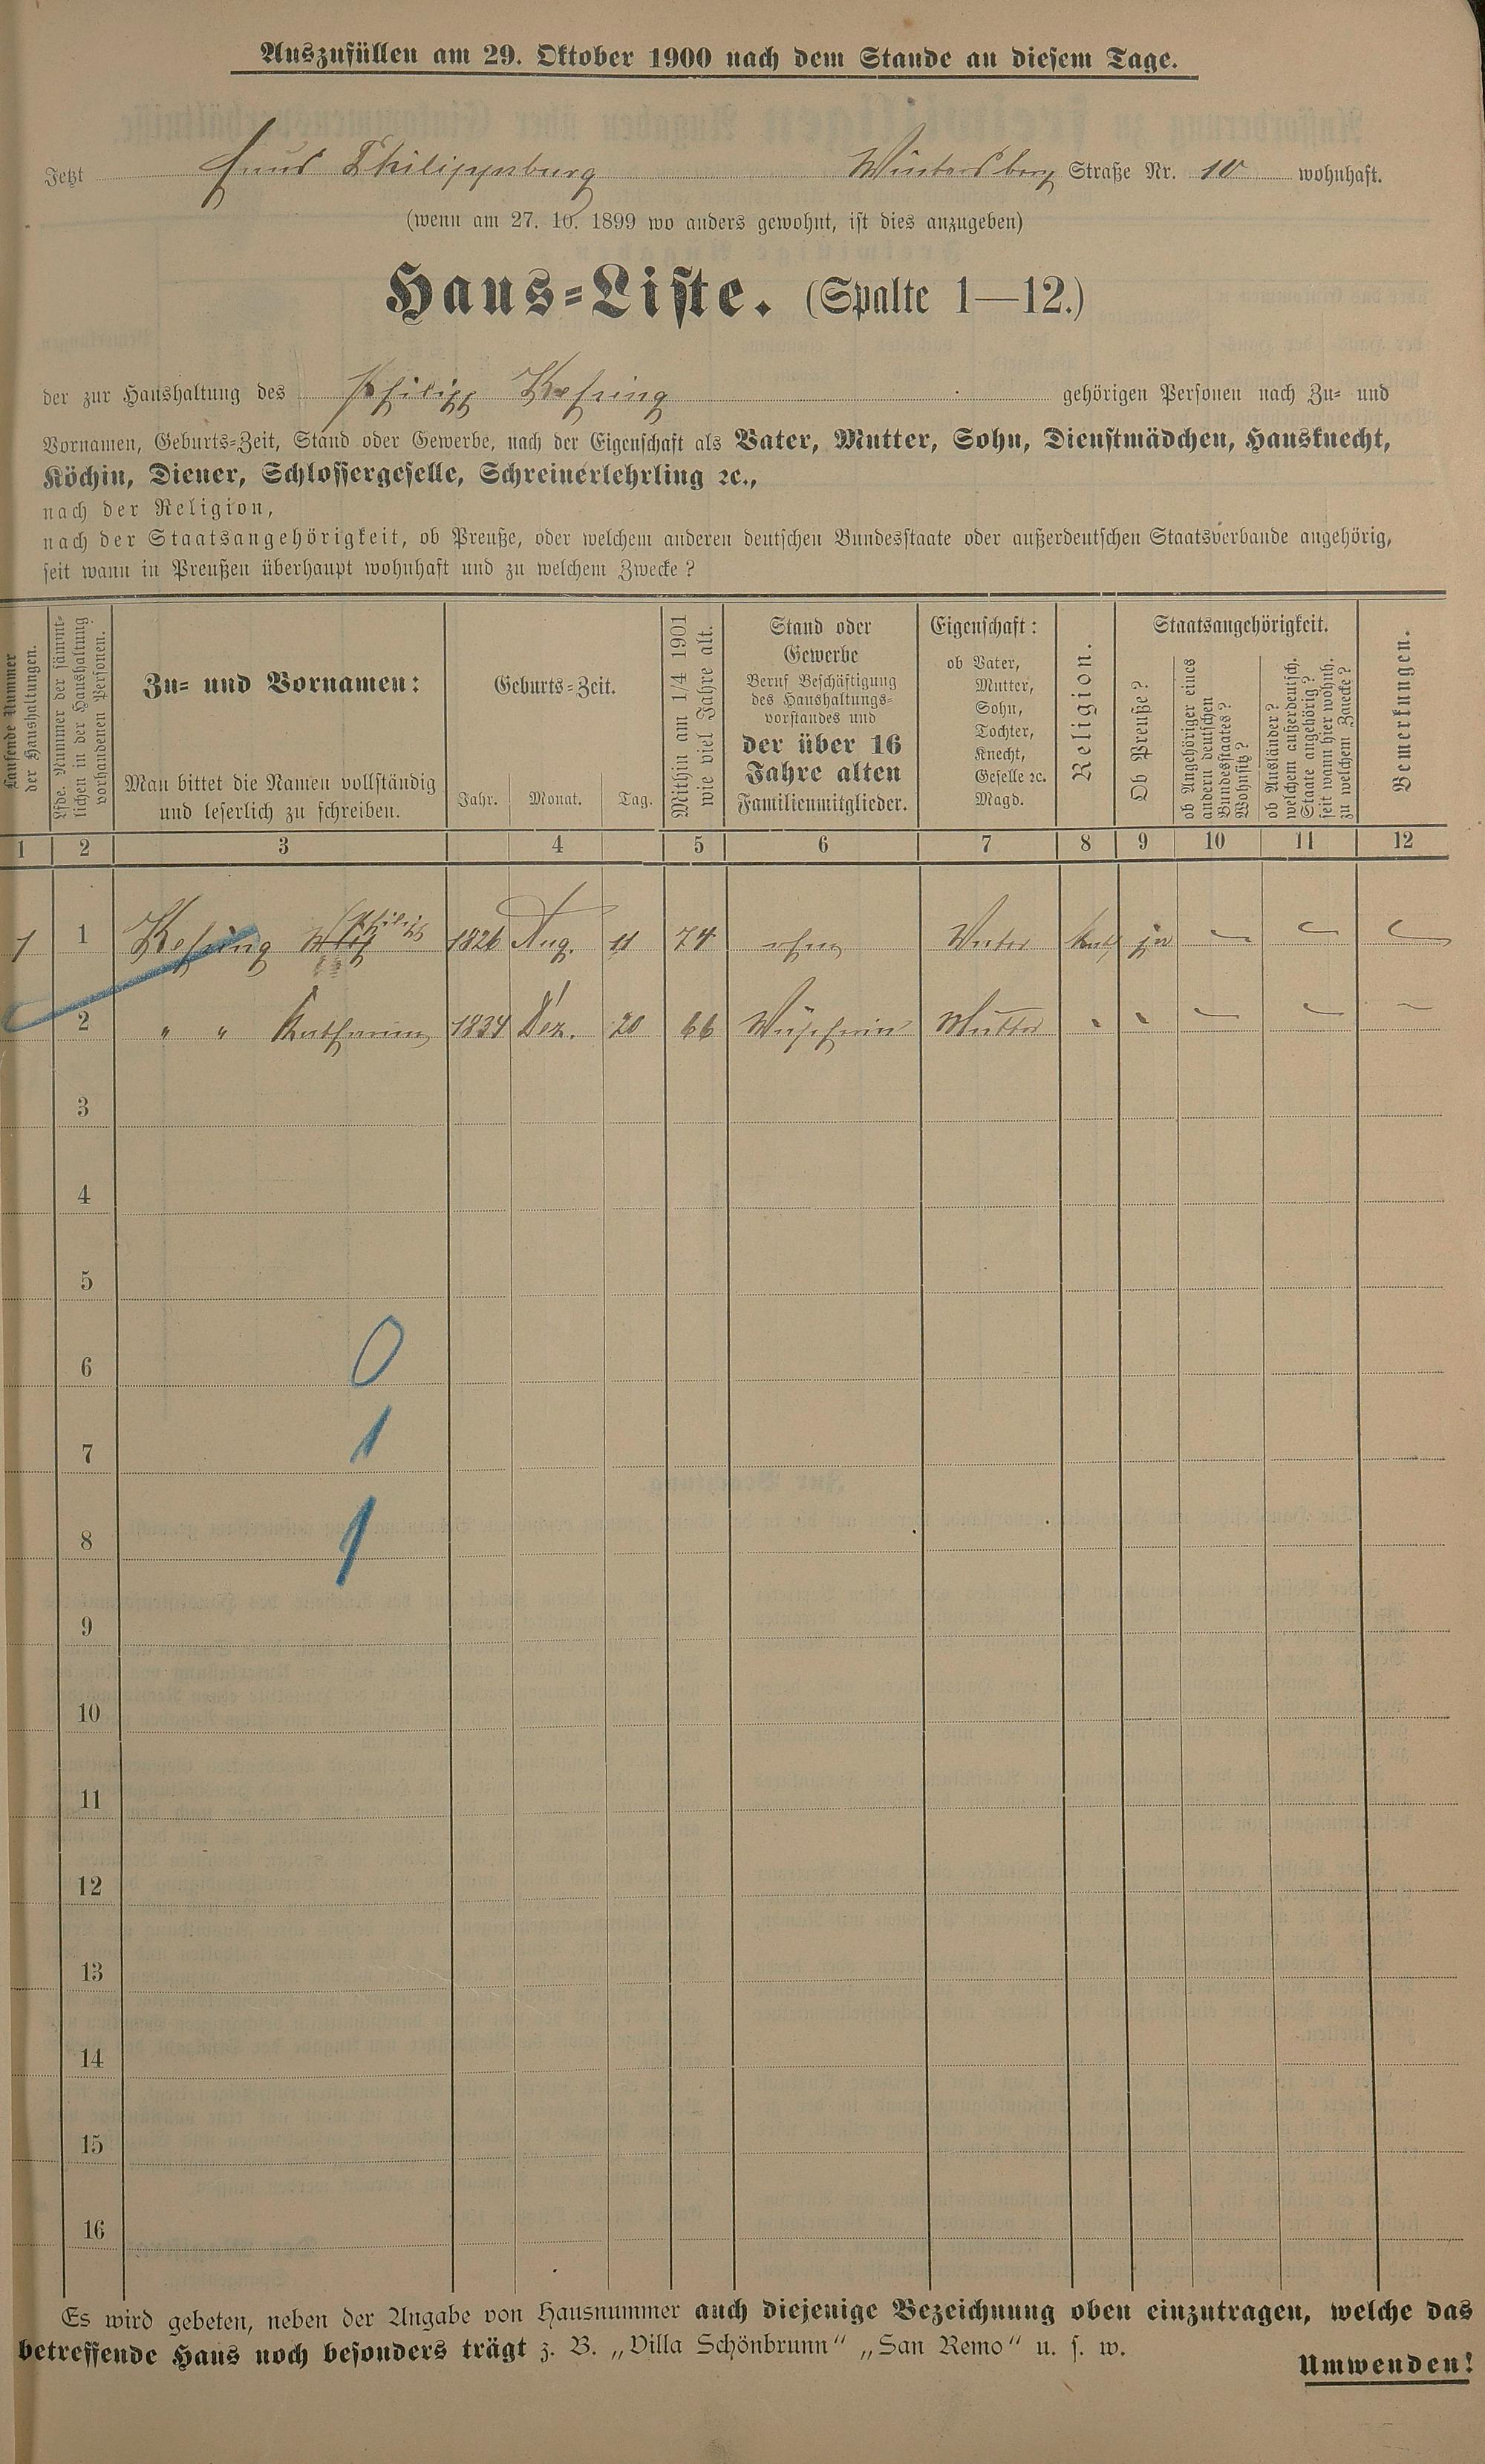 Auszufüllen am 29. Oktober 1900 nach dem Stande an diesem Tage.
Jetzt Haus Philippsburg Wintersberg Straße Nr. 10 wohnhaft.
(wenn am 27. 10. 1899 wo anders gewohnt, ist dies anzugeben)
Haus-Liste. (Spalte 1—12.)
der zur Haushaltung des Philipp Kehring gehörigen Personen nach Zu- und
Vornamen, Geburts-Zeit, Stand oder Gewerbe, nach der Eigenschaft als Vater, Mutter, Sohn, Dienstmädchen, Hausknecht,
Köchin, Diener, Schlossergeselle, Schreinerlehrling ꝛc.,
nach der Religion,
nach der Staatsangehörigkeit, ob Preuße, oder welchem anderen deutschen Bundesstaate oder außerdeutschen Staatsverbande angehörig,
seit wann in Preußen überhaupt wohnhaft und zu welchem Zwecke?
Laufende Nummer
der Haushaltungen.
Lfde. Nummer der sämmt-
lichen in der Haushaltung
vorhandenen Personen.
Zu- und Vornamen:
Man bittet die Namen vollständig
und leserlich zu schreiben.
Geburts-Zeit.
Jahr. Monat. Tag.
Mithin am 1/4 1901
wie viel Jahre alt.
Stand oder
Gewerbe
Beruf Beschäftigung
des Haushaltungs-
vorstandes und
der über 16
Jahre alten
Familienmitglieder.
Eigenschaft:
ob Vater,
Mutter,
Sohn,
Tochter,
Knecht,
Geselle ꝛc.
Magd.
Religion.
Staatsangehörigkeit.
Ob Preuße?
ob Angehöriger eines
andern deutschen
Bundesstaates?
Wohnsitz?
ob Ausländer?
welchem außerdeutsch.
Staate angehörig?
seit wann hier wohnh.
zu welchem Zwecke?
Bemerkungen.
1 2 3 4 5 6 7 8 9 10 11 12
1 1 Kehring Philipp 1826 Aug. 11 74 ohne Vater kath. ja — — —
2 " " Katharina 1834 Dez. 20 66 Wäscherin Mutter " " — — —
3
4
5
6 0
7 1
8 1
9
10
11
12
13
14
15
16
Es wird gebeten, neben der Angabe von Hausnummer auch diejenige Bezeichnung oben einzutragen, welche das
betreffende Haus noch besonders trägt z. B. „Villa Schönbrunn“ „San Remo“ u. s. w.
Umwenden!